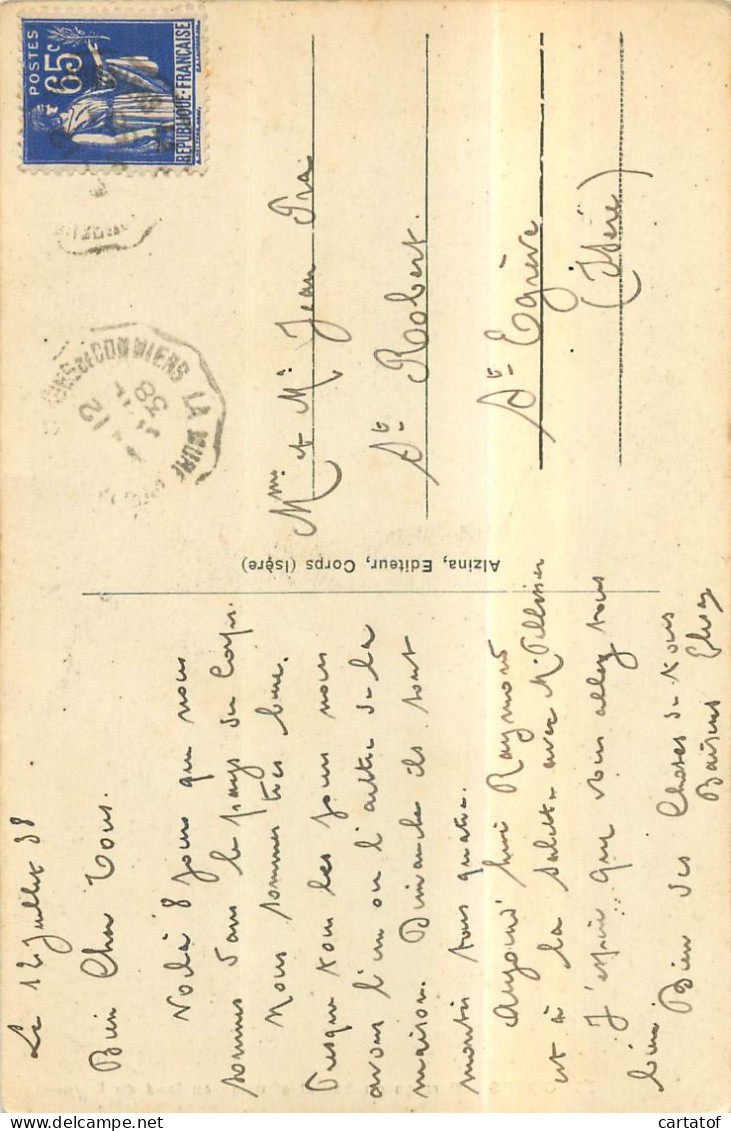 Le 12 Juillet 38
Bien Cher Tous.
Voilà 8 jours que nous
sommes dans le pays du Corps.
Nous sommes très bien.
Presque tous les jours nous
avons l'un ou l'autre de la
maison. Dimanche ils sont
montés tous quatre.
Aujourd'hui Raymond
est à la Salette avec Mr Pellissier
J'espère que vous allez tous
bien.
Bien des Choses de tous
Baisers
Alzina, Editeur, Corps (Isère)
POSTES
65c
REPUBLIQUE-FRANÇAISE
DE COMMIERS LA MURE
12
38
Mme et Mr Jean Pra
St Robert.
St Egrève
(Isère)
cartatof